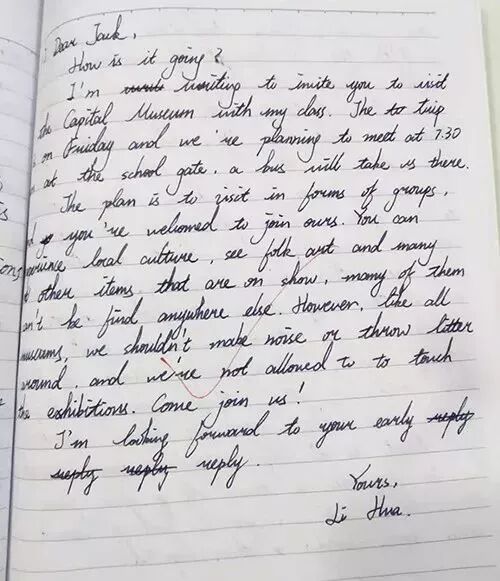 Dear Jack,
How is it going?
I'm writing to invite you to visit
the Capital Museum with my class. The trip
is on Friday and we're planning to meet at 7.30
at the school gate, a bus will take us there.
The plan is to visit in forms of groups,
you're welcomed to join ours. You can
experience local culture, see folk art and many
other items that are on show, many of them
can't be find anywhere else. However, like all
museums, we shouldn't make noise or throw litter
around, and we're not allowed to to touch
the exhibitions. Come join us!
I'm looking forward to your early reply
reply reply reply.
Yours,
Li Hua.